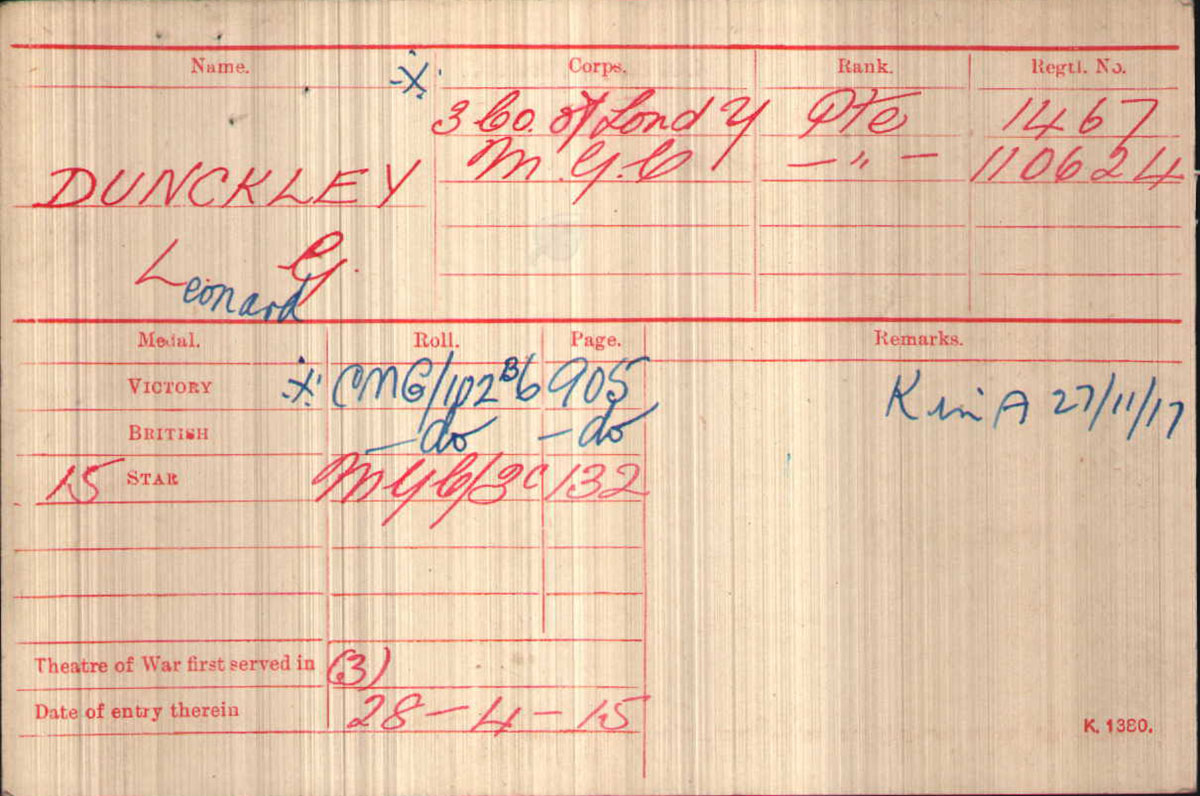 Name. Corps. Rank. Regtl. No.
3 Co. of Lond Y Pte 1467
DUNCKLEY M.G.C — " — 110624
Leonard G.
Medal. Roll. Page. Remarks.
VICTORY CMG/102B6 905 K in A 27/11/17
BRITISH — do — do
15 STAR MGC/3C 132
Theatre of War first served in (3)
Date of entry therein 28-4-15
K. 1380.